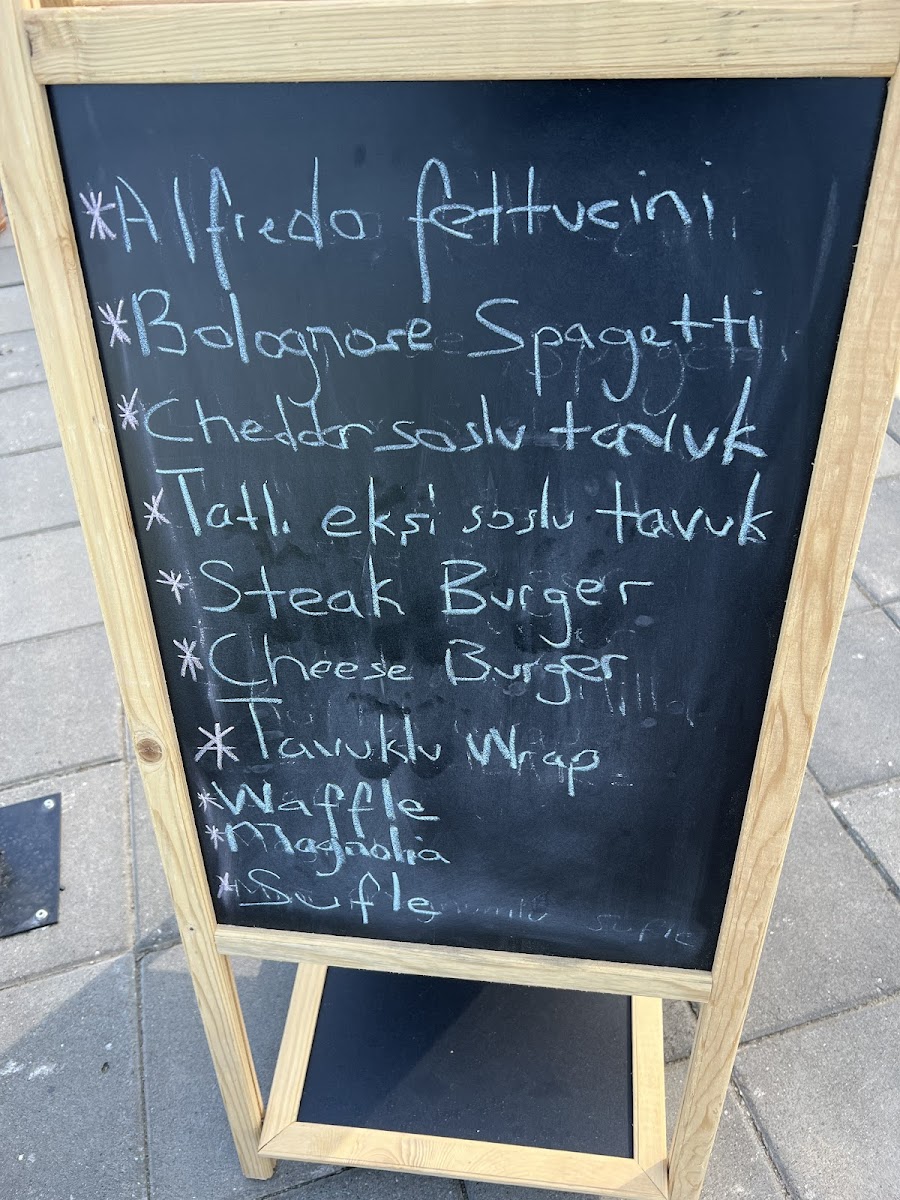 * Alfredo fettucini
* Bolognose Spagetti
* Cheddar soslu tavuk
* Tatlı ekşi soslu tavuk
* Steak Burger
* Cheese Burger
* Tavuklu Wrap
* Waffle
* Magnolia
* Sufle
sufle